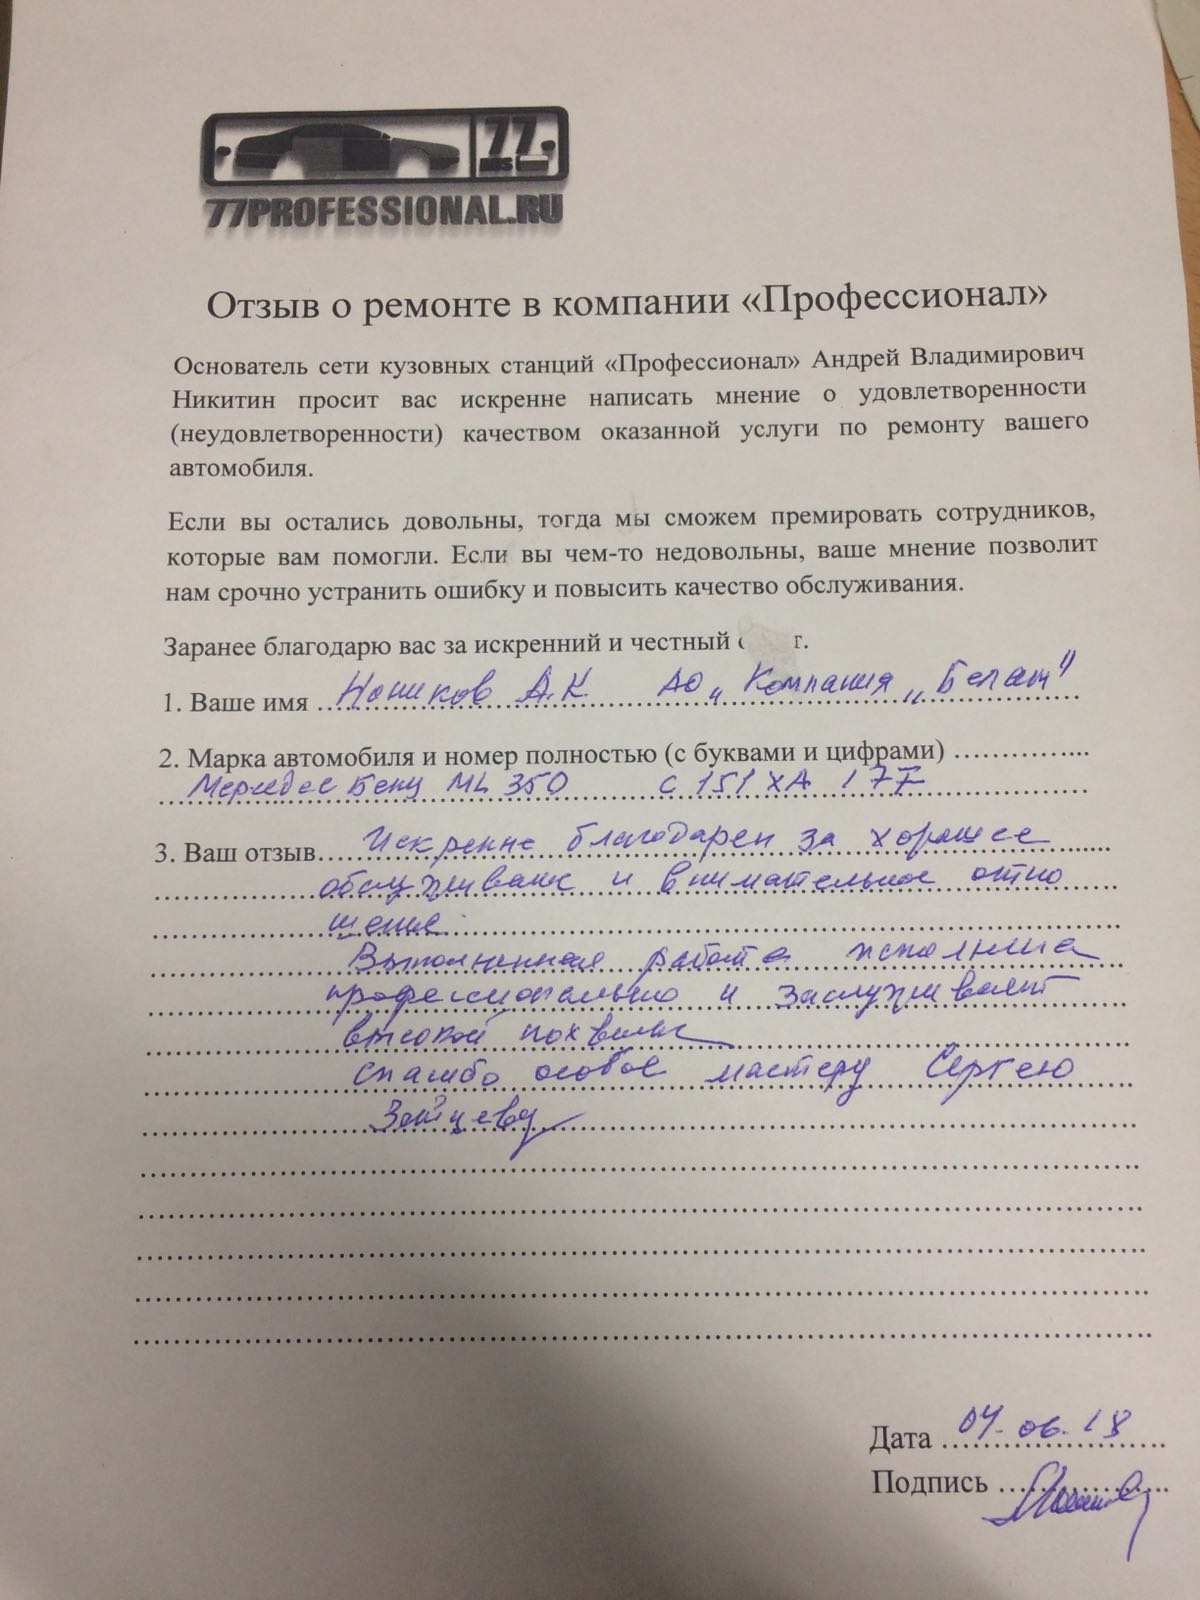 77
RUS
77PROFESSIONAL.RU
Отзыв о ремонте в компании «Профессионал»
Основатель сети кузовных станций «Профессионал» Андрей Владимирович
Никитин просит вас искренне написать мнение о удовлетворенности
(неудовлетворенности) качеством оказанной услуги по ремонту вашего
автомобиля.
Если вы остались довольны, тогда мы сможем премировать сотрудников,
которые вам помогли. Если вы чем-то недовольны, ваше мнение позволит
нам срочно устранить ошибку и повысить качество обслуживания.
Заранее благодарю вас за искренний и честный
1. Ваше имя А.К. АО „Компания „
2. Марка автомобиля и номер полностью (с буквами и цифрами)
Мерседес Бенц ML 350 С 151 ХА 177
3. Ваш отзыв Искренне благодарен за хорошее
обслуживание и внимательное отно
шение
Выполненная работа исполнена
профессионально и заслуживает
высокой похвалы
спасибо особое мастеру Сергею
Зайцеву
Дата 04.06.18
Подпись